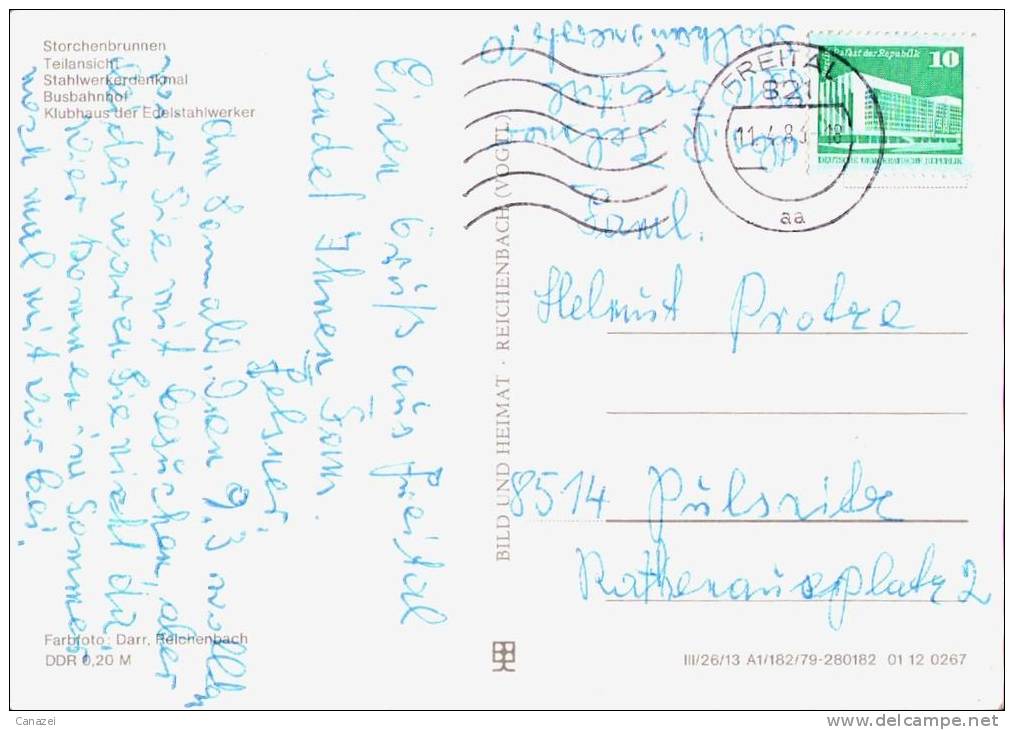 Storchenbrunnen
Teilansicht
Stahlwerkerdenkmal
Busbahnhof
Klubhaus der Edelstahlwerker
Einen Grüß aus Freital
sendet Ihnen Fam.
Fehsner!
Am Sonnabend, den 9.3 wollten
wir Sie mit besuchen, aber
leider waren Sie nicht da,
wier kommen in Sommer
noch mal mit vor bei.
Farbfoto: Darr, Reichenbach
DDR 0,20 M
BILD UND HEIMAT · REICHENBACH (VOGTL)
FREITAL
821
11.4.83 - 18
aa
Palast der Republik 10
DEUTSCHE DEMOKRATISCHE REPUBLIK
Faml.
Helmut Protze
8514 Pulsnitz
Rathenauplatz 2
III/26/13 A1/182/79-280182 01 12 0267
Canazei
www.delcampe.net